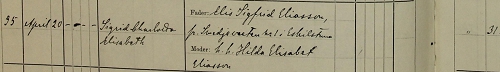 Fader: Elis Sigfrid Eliasson,
35 April 20 Sigrid Charlotta f. Eskilstuna
Elisabeth Moder: Hilda Elisabet 31
Eliasson